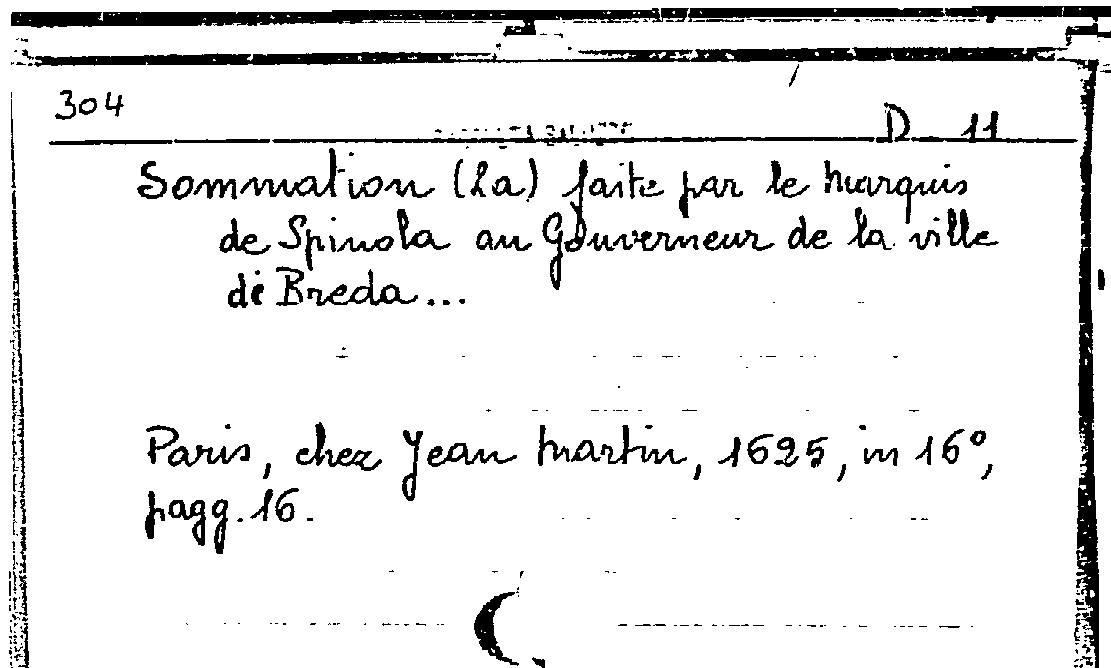 304
D 11
Sommation (La) faite par le Marquis
de Spinola au Gouverneur de la ville
de Breda...
Paris, chez Jean Martin, 1625, in 16°,
pagg. 16.